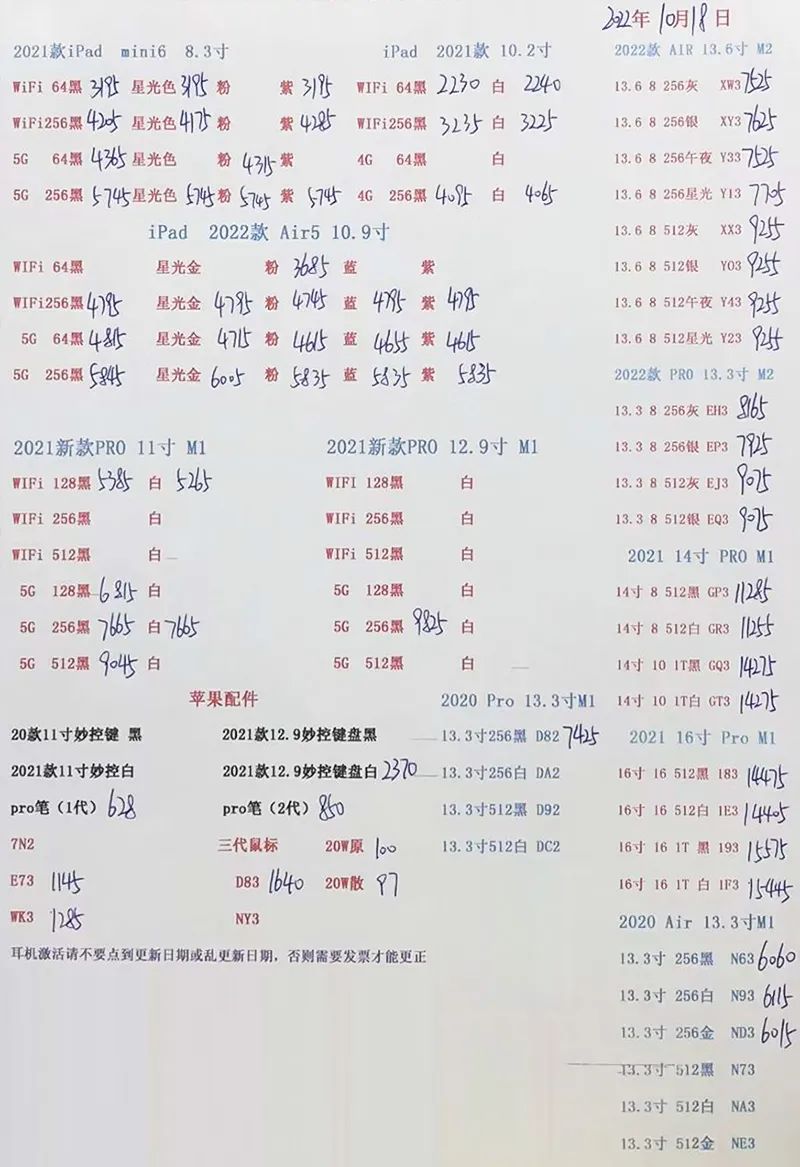 2022年10月18日
2021款iPad mini6 8.3寸
WiFi 64黑 3195 星光色 3195 粉 紫 3195
WiFi256黑 4205 星光色 4175 粉 紫 4285
5G 64黑 4365 星光色 粉 4315 紫
5G 256黑 5745 星光色 5745 粉 5745 紫 5745
iPad 2021款 10.2寸
WIFI 64黑 2230 白 2240
WIFI256黑 3235 白 3225
4G 64黑 白
4G 256黑 4095 白 4065
iPad 2022款 Air5 10.9寸
WIFi 64黑 星光金 粉 3685 蓝 紫
WIFi256黑 4795 星光金 4795 粉 4745 蓝 4795 紫 4795
5G 64黑 4815 星光金 4715 粉 4615 蓝 4655 紫 4615
5G 256黑 5845 星光金 6005 粉 5835 蓝 5835 紫 5835
2021新款PRO 11寸 M1
WIFi 128黑 5385 白 5265
WIFi 256黑 白
WIFi 512黑 白
5G 128黑 6815 白
5G 256黑 7665 白 7665
5G 512黑 9045 白
2021新款PRO 12.9寸 M1
WIFI 128黑 白
WIFi 256黑 白
WIFi 512黑 白
5G 128黑 白
5G 256黑 9825 白
5G 512黑 白
苹果配件
20款11寸妙控键 黑 2021款12.9妙控键盘黑
2021款11寸妙控白 2021款12.9妙控键盘白 2370
pro笔（1代） 628 pro笔（2代） 850
7N2 三代鼠标 20W原 100
E73 1145 D83 1640 20W散 97
WK3 1285 NY3
耳机激活请不要点到更新日期或乱更新日期，否则需要发票才能更正
2020 Pro 13.3寸M1
13.3寸256黑 D82 7425
13.3寸256白 DA2
13.3寸512黑 D92
13.3寸512白 DC2
2022款 AIR 13.6寸 M2
13.6 8 256灰 XW3 7525
13.6 8 256银 XY3 7625
13.6 8 256午夜 Y33 7525
13.6 8 256星光 Y13 7705
13.6 8 512灰 XX3 9255
13.6 8 512银 YO3 9255
13.6 8 512午夜 Y43 9255
13.6 8 512星光 Y23 9255
2022款 PRO 13.3寸 M2
13.3 8 256灰 EH3 8165
13.3 8 256银 EP3 7925
13.3 8 512灰 EJ3 9075
13.3 8 512银 EQ3 9075
2021 14寸 PRO M1
14寸 8 512黑 GP3 11285
14寸 8 512白 GR3 11255
14寸 10 1T黑 GQ3 14275
14寸 10 1T白 GT3 14275
2021 16寸 Pro M1
16寸 16 512黑 183 14475
16寸 16 512白 1E3 14405
16寸 16 1T 黑 193 15575
16寸 16 1T 白 1F3 15445
2020 Air 13.3寸M1
13.3寸 256黑 N63 6060
13.3寸 256白 N93 6115
13.3寸 256金 ND3 6015
13.3寸 512黑 N73
13.3寸 512白 NA3
13.3寸 512金 NE3